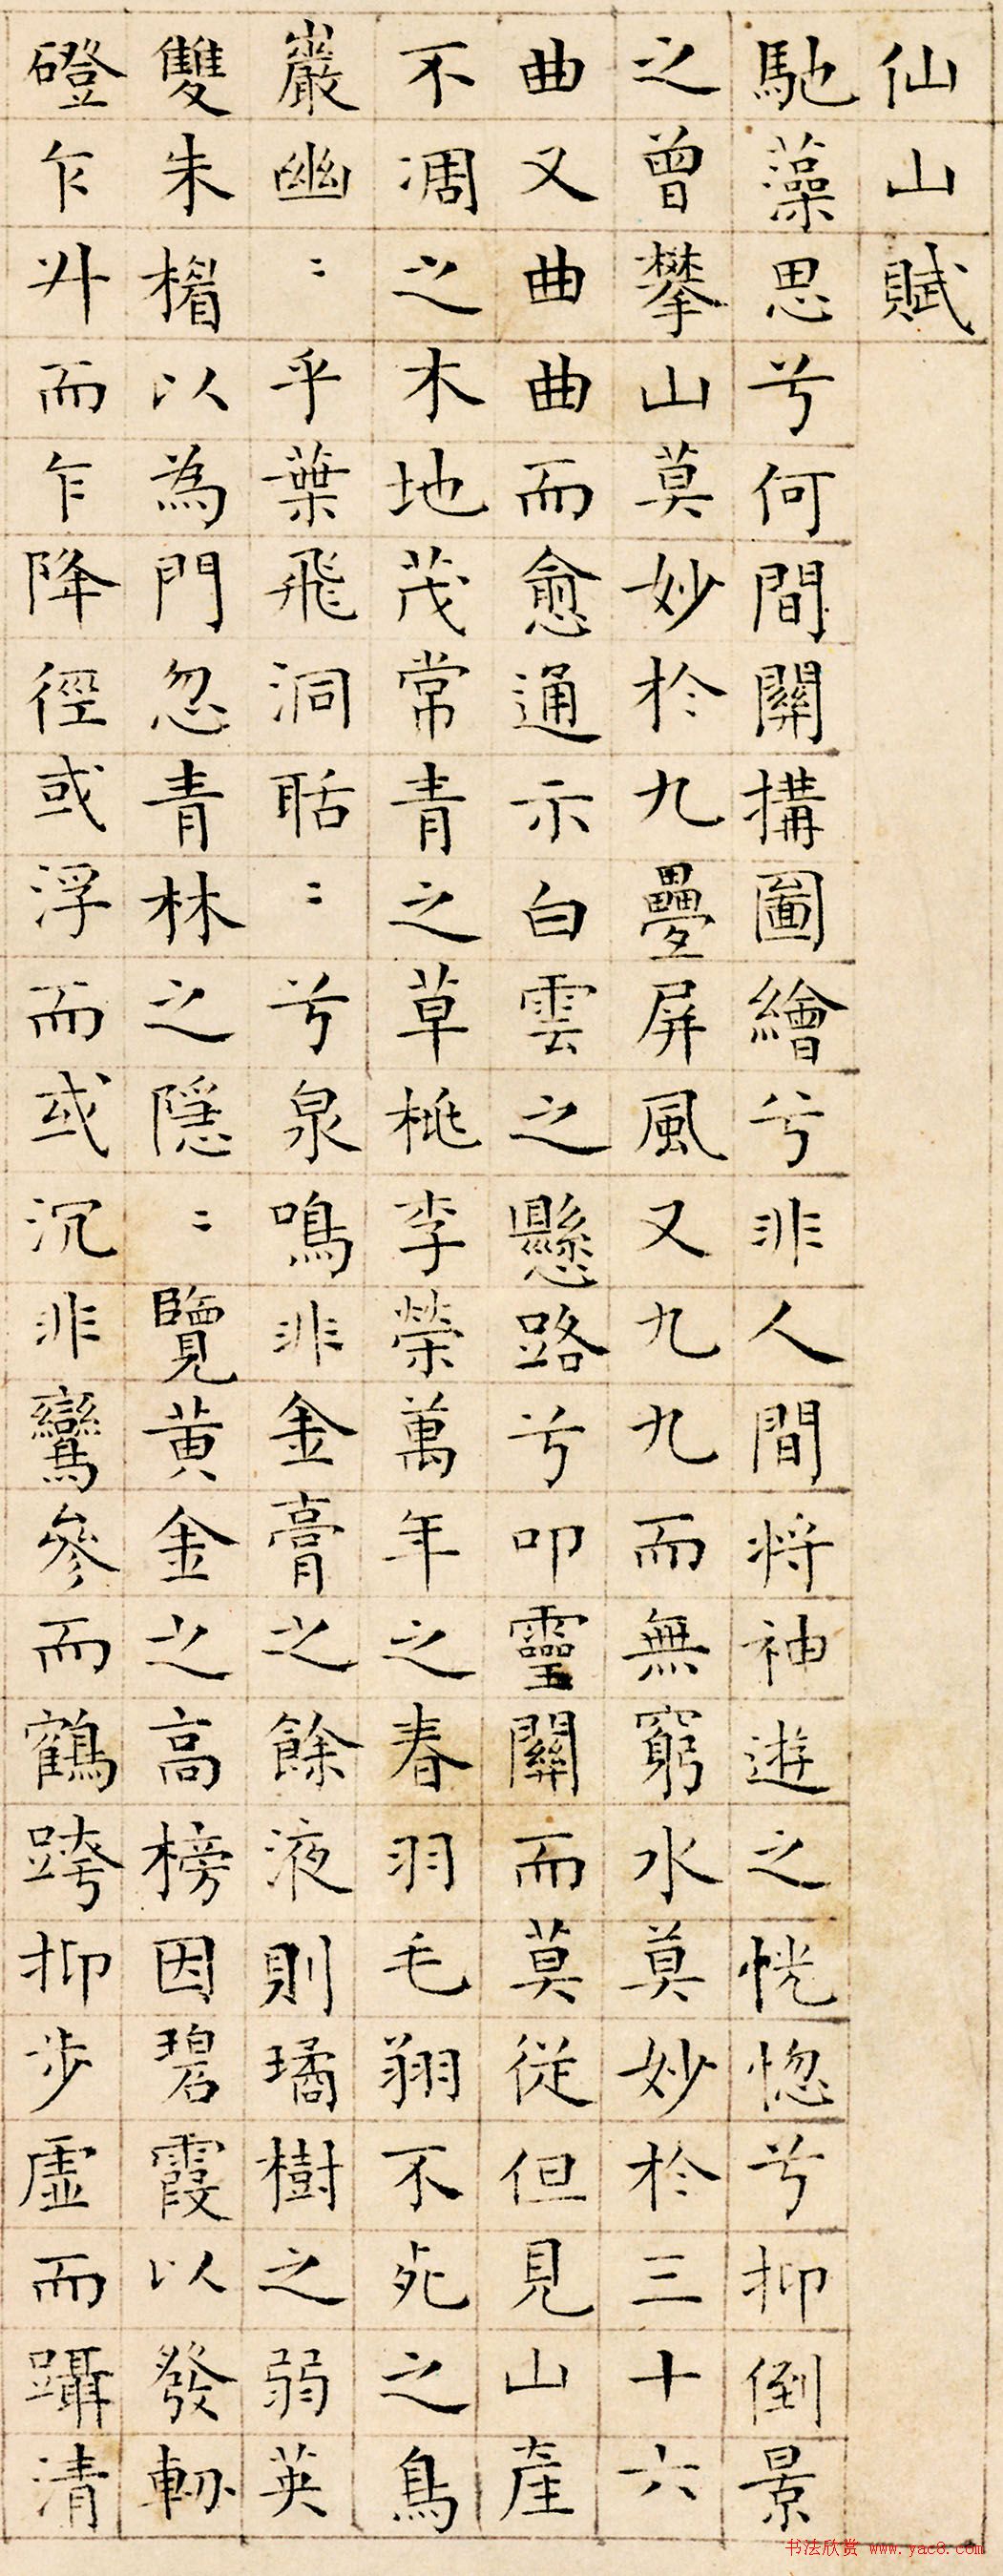 仙山賦
馳藻思兮何間關搆圖繪兮非人間將神遊之恍惚兮抑倒景
之曾攀山莫妙於九疊屏風又九九而無窮水莫妙於三十六
曲又曲曲而愈通示白雲之懸路兮叩靈關而莫從但見山產
不凋之木地茂常青之草桃李榮萬年之春羽毛翔不死之鳥
巖幽〻乎葉飛洞聒〻兮泉鳴非金膏之餘液則璚樹之弱英
雙朱楣以為門忽青林之隱〻覽黃金之高榜因碧霞以發軔
磴乍升而乍降徑或浮而或沉非鸞參而鶴跨抑步虛而躡清
书法欣赏 www.yac8.com